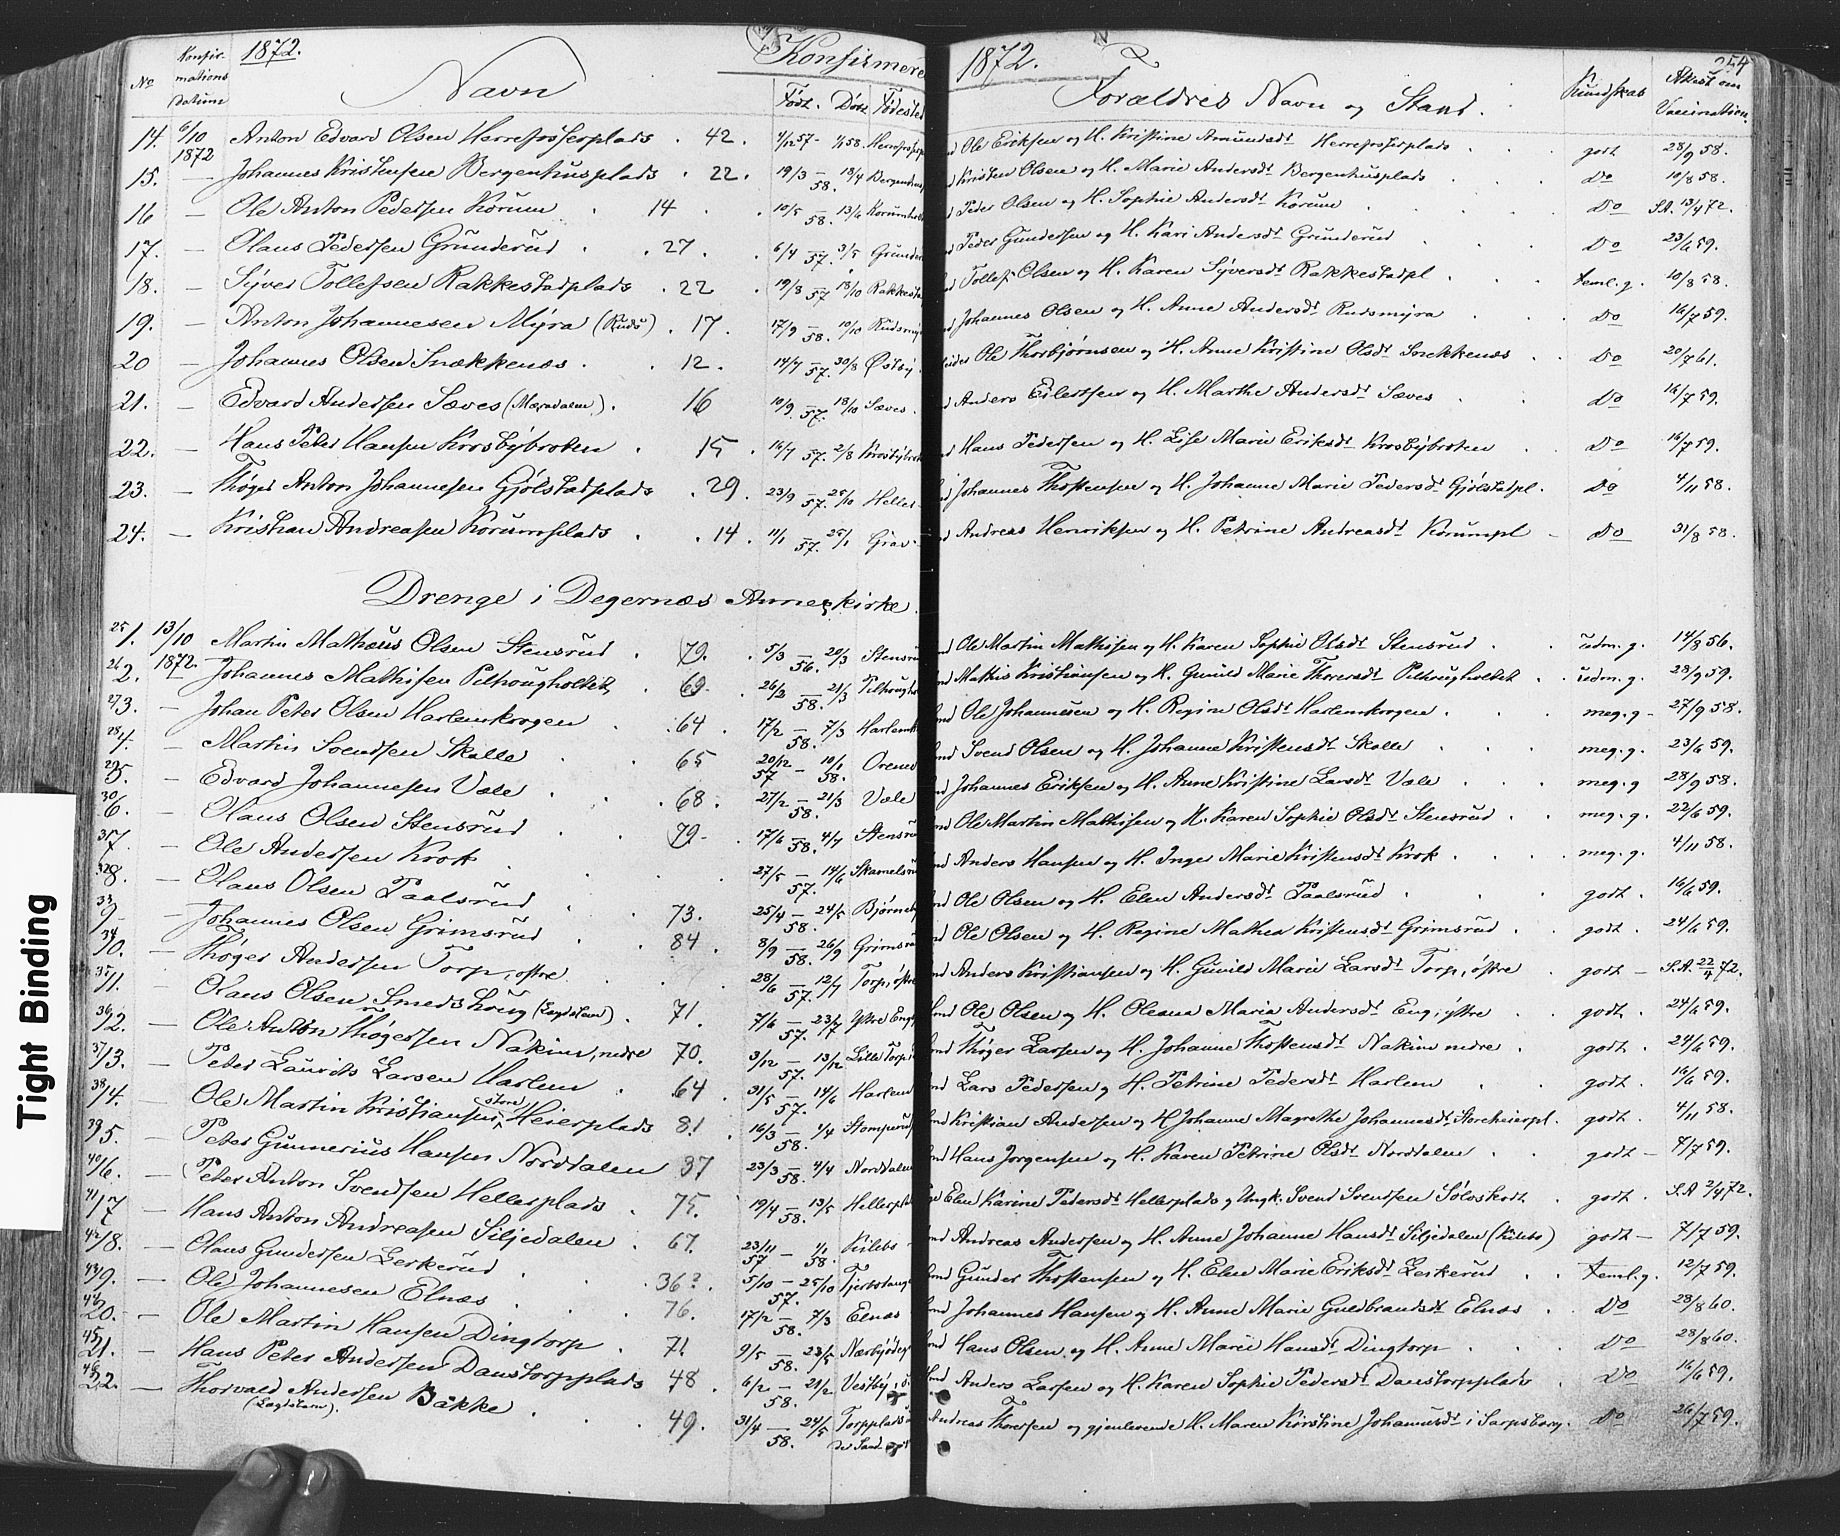 1872. Konfirmere 1872. 254
No Konfirmations datum Navn Født. Døbt Fødested Forældres Navn og Stand. Kundskab Attest om Vaccination.
14. 6/10 1872 Anton Edvard Olsen Herrefosserplads . 42. 4/12 57 - 1/1 58. Ole Eriksen og H. Kristine Amundsdt Herrefosserplads godt 28/9 58.
15. — Johannes Kristensen Bergenhusplads . 22. 19/3 — 18/4 58. Bergenhus Kristen Olsen og H. Marie Andersdt Bergenhusplads do 10/8 58.
16 — Ole Anton Pedersen Korum 14 10/5 — 13/6 58. Peder Olsen og H. Sophie Andersdt Korum do S.A. 13/4 72.
17. — Olaus Pedersen Grunderud 27. 6/4 — 3/5 57. Grunder Peder Gundersen og H. Kari Andersdt Grunderud Do 23/6 59.
18. — Syver Tollefsen Rakkestadplads . 22 19/8 — 18/10 57 Rakkesta Tollef Olsen og H. Karen Syversdt Rakkestadpl teml. g. 10/8 58.
19. — Anton Johannesen Myra (Ruds) . 17. 17/9 — 10/10 58. Rudsmyr Johannes Olsen og H. Anne Andersdt Rudsmyra Do 16/7 59.
20 — Johannes Olsen Snækkenæs . 12. 14/7 — 30/8 57. Østby Ole Thorbjørnsen og H. Anne Kristine Olsdt Snekkenæs Do 20/7 61.
21. — Edvard Andersen Sæves (Mæradalen). 16 10/9 — 18/10 57. Sæves. Anders Eilertsen og H. Marthe Andersdt Sæves Do 16/7 59.
22. — Hans Peter Hansen Krosbybroten 15 . 16/7 57. 2/8 Krosbybrot Hans Pedersen og H. Lise Marie Eriksdt Krosbybroten Do 16/7 59.
23. — Thøger Anton Johannesen Gjølstadplads . 29. 23/9 — 25/10 57. Helles Johannes Thostensen og H. Johanne Marie Pedersdt Gjølstadpl. Do 4/11 58.
24. — Kristian Andreasen Korumsplads . 14. 11/1 — 25/1 57. Grav- Andreas Henriksen og H. Petrine Andreasdt Korumpl Do 31/8 58.
Drenge i Degernæs Annexkirke.
25 1. 13/10 1872. Martin Mathæus Olsen Stensrud . 79. 5/3 — 20/3 56. Stensru Ole Martin Mathisen og H. Karen Sophie Olsdt Stensrud udm. g. 14/8 56.
26 2. — Johannes Mathisen Pilhougholtet . 69. 26/2 — 21/3 58. Pilhougho Mathis Kristiansen og H. Gunild Marie Thoresdt Pilhougholtet udm. g. 28/9 59.
27 3. — Johan Peter Olsen Harlemskogen . 64 17/2 — 7/3 58. Harlemsk Ole Johannesen og H. Regine Olsdt Harlemskogen meg. g - 27/9 58.
28 4. — Martin Svendsen Skolle 65 20/12 57 — 10/1 58. Svend Olsen og H. Johanne Kristensdt Skolle meg. g. 23/6 59.
29 5. — Edvard Johannesen Væle . 68. 27/2 — 21/3 58. Væle Johannes Eriksen og H. Anne Kristine Larsdt Væle meg. g 28/9 58.
30 6. — Olaus Olsen Stensrud 79. 17/6 — 4/7 58. Stensru Ole Martin Mathisen og H. Karen Sophie Olsdt Stensrud meg. g. 22/6 59.
31 7. — Ole Andersen Krok 27/5 — 14/6 57. Skamelsru Anders Hansen og H. Inger Marie Kristensdt Krok meg. g. 4/11 58.
32 8. — Olaus Olsen Paalsrud 73. 25/4 — 24/5 58. Bjørneby Ole Olsen og H. Elen Andersdt Paalsrud godt . 16/6 59.
33 9. — Johannes Olsen Grimsrud 84 8/9 — 26/9 58. Grimsru Ole Olsen og H. Regine Mathea Kristensdt Grimsrud godt . 24/6 59.
34 10. — Thøger Andersen Torp, østre 28/6 — 12/7 57. Torp, østre Anders Kristiansen og H. Gunild Marie Larsdt Torp, østre godt — S.A. 22/4 72.
35 11. — Olaus Olsen Smedshaug (Løgdslavn) . 71. 7/6 — 23/7 57. Ystre Eng Ole Olsen og H. Oleana Maria Andersdt Eng, ystre godt . 24/6 59.
36 12. — Ole Anton Thøgersen Nakim, nedre 70. 3/12 — 13/12 57. Lille Torp, Thøger Larsen og H. Johanne Thostensdt Nakim nedre godt . 24/6 59.
37 13. — Peter Laurits Larsen Harlem 64 31/5 — 14/6 57. Harlem Lars Pedersen og H. Petrine Pedersdt Harlem godt . 16/6 59.
38 14. — Ole Martin Kristiansen store Heierplads 81. 16/3 — 1/4 58. Kristian Andersen og H Johanne Magrethe Johannesdt Storeheierpl. godt . 4/11 58.
39 5. — Peter Gunnerius Hansen Nordtalen 37 23/3 — 4/4 58. Nordtalen Hans Jørgensen og H. Karen Petrine Olsdt Nordtalen godt — 8/7 59.
40 16. — Peter Anton Svendsen Hellesplads . 75. 19/4 — 13/5 58. Hellespla Elen Karine Pedersdt Hellesplads og Ungk. Svend Svendsen Sølvskodt godt . S.A 2/4 72.
41 17 — Hans Anton Andreasen Siljedalen . 67. 23/11 57 — 1/1 58. Kilebo Andreas Andersen og H. Anne Johanne Hansdt Siljedalen (Kilebo) godt — 7/7 59.
42 18. — Olaus Gundersen Lerkerud 36? . 5/10 — 25/10 57. Gunder Thostensen og H. Elen Marie Eriksdt Lerkerud temlg. 12/7 59.
43 19. — Ole Johannesen Elnæs 76. 17/2 — 7/3 58. Elnæs Johannes Hansen og H. Anne Marie Guldbrandsdt Elnæs Do 28/8 60.
44 20. — Ole Martin Hansen Dingtorp . 71 9/5 — 23/5 58. Hans Olsen og H. Anne Marie Hansdt Dingtorp Do 28/8 60.
45 21. — Hans Peter Andersen Danstorpplads 48 . 6/2 — 21/2 58. Vestby, Anders Larsen og H. Karen Sophie Pedersdt Danstorpplads Do 16/6 59.
46 22. — Thorvald Andersen Bakke (Løgdslavn). 49. 31/4 — 24/5 58. Torpplads Andreas Thoresen og gjenlevende H. Maren Kirstine Johannesdt i Sarpsborg. Do 26/7 59.
Tight Binding